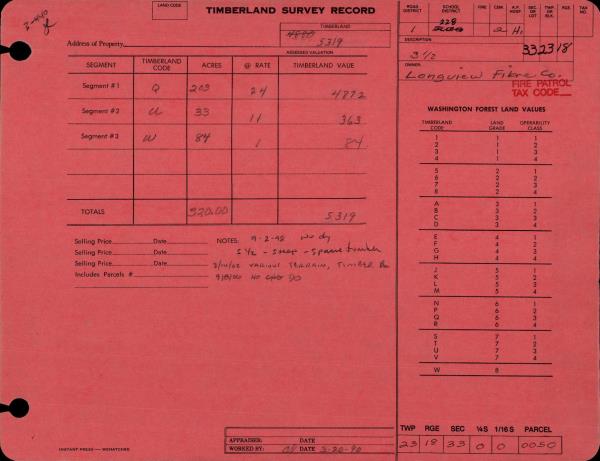 LAND CODE
TIMBERLAND SURVEY RECORD
TIMBERLAND
5319
Address of Property
ASSESSED VALUATION
SEGMENT TIMBERLAND CODE ACRES @ RATE TIMBERLAND VAUE
Segment #1 Q 203 24 4872
Segment #2 U 33 11 363
Segment #3 W 84 1 84
TOTALS 320.00 5319
Selling Price Date NOTES: 9-2-92
Selling Price Date S 1/2 - steep - sparse timber
Selling Price Date VARIOUS TERRAIN, TIMBER
Includes Parcels # NO CHG
APPRAISER: DATE
WORKED BY: DATE 3-20-90
INSTANT PRESS — WENATCHEE
ROAD DISTRICT SCHOOL DISTRICT FIRE CEM. A.P. HOSP SEC. OR LOT TWP. OR BLK. RGE. TAX NO.
228
1 2 H1
DESCRIPTION 332318
S 1/2
OWNER
Longview Fibre Co.
FIRE PATROL
TAX CODE
WASHINGTON FOREST LAND VALUES
TIMBERLAND CODE LAND GRADE OPERABILITY CLASS
1 1 1
2 1 2
3 1 3
4 1 4
5 2 1
6 2 2
7 2 3
8 2 4
A 3 1
B 3 2
C 3 3
D 3 4
E 4 1
F 4 2
G 4 3
H 4 4
J 5 1
K 5 2
L 5 3
M 5 4
N 6 1
P 6 2
Q 6 3
R 6 4
S 7 1
T 7 2
U 7 3
V 7 4
W 8
TWP RGE SEC 1/4S 1/16S PARCEL
23 18 33 0 0 0050